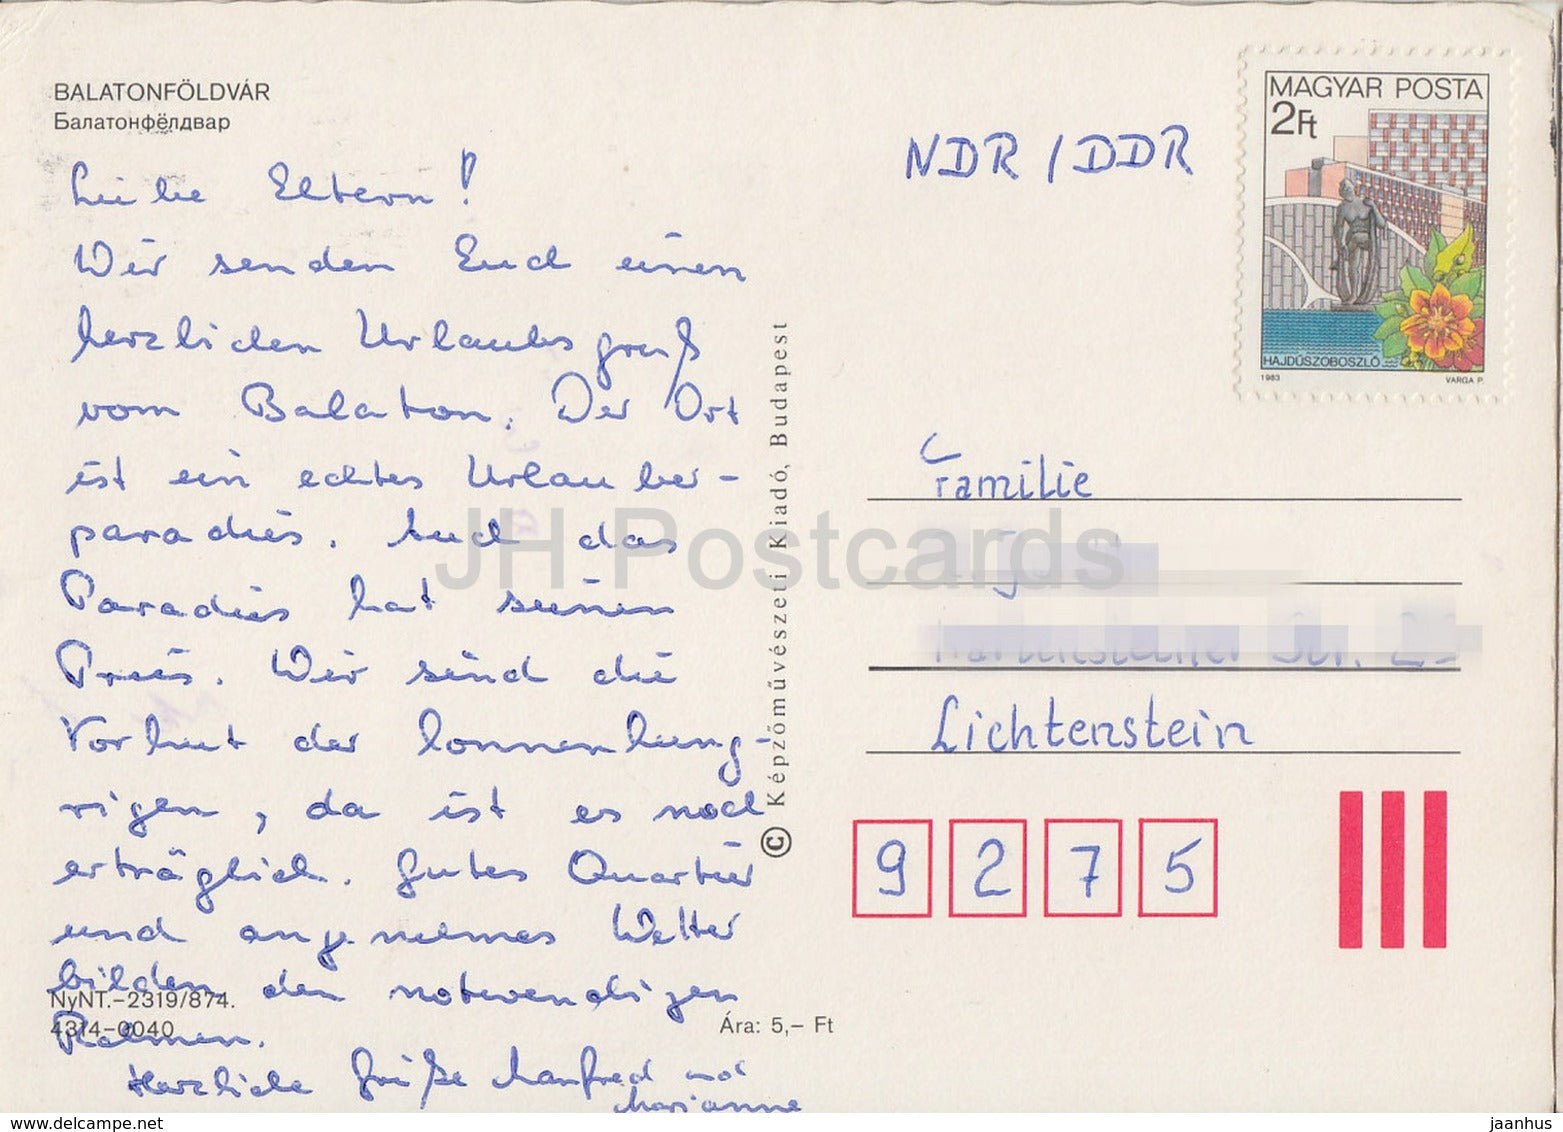 BALATONFÖLDVÁR
Балатонфёлдвар
Liebe Eltern!
Wir senden Euch einen
herzlichen Urlaubsgruß
vom Balaton. Der Ort
ist ein echtes Urlauber-
paradies. Auch das
Paradies hat seinen
Preis. Wir sind die
Vorhut der Sonnenhung-
rigen, da ist es noch
erträglich. Gutes Quartier
und angenehmes Wetter
bilden den notwendigen
Rahmen.
Herzliche Grüße Manfred und
Marianne
NyNT.-2319/874.
4314-0040
Ára: 5,- Ft
© Képzőművészeti Kiadó, Budapest
JH Postcards
NDR / DDR
MAGYAR POSTA
2Ft
HAJDÚSZOBOSZLÓ
1983 VARGA P.
Familie
Str.
Lichtenstein
9 2 7 5
www.delcampe.net
jaanhus